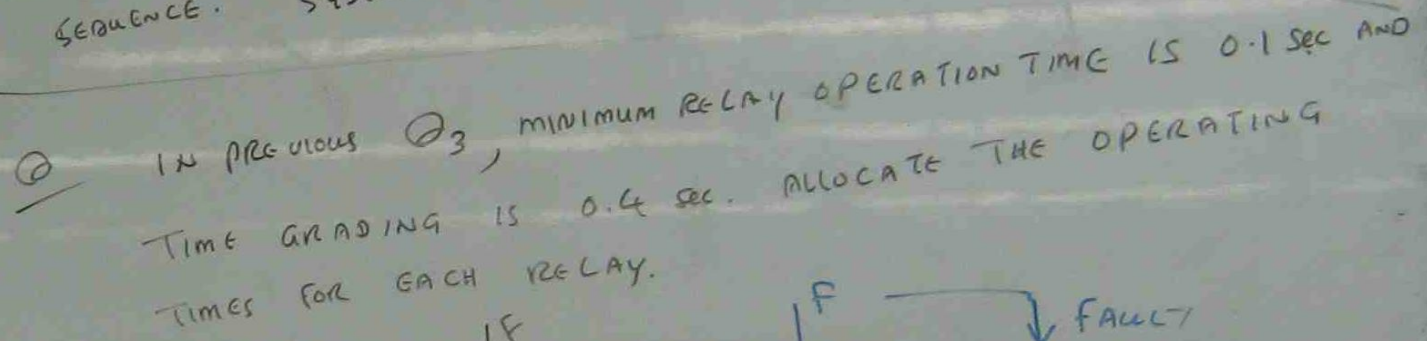 SEQUENCE.
Q IN PREVIOUS Q3, MINIMUM RELAY OPERATION TIME IS 0.1 SEC AND
TIME GRADING IS 0.4 SEC. ALLOCATE THE OPERATING
TIMES FOR EACH RELAY.
IF
F FAULT